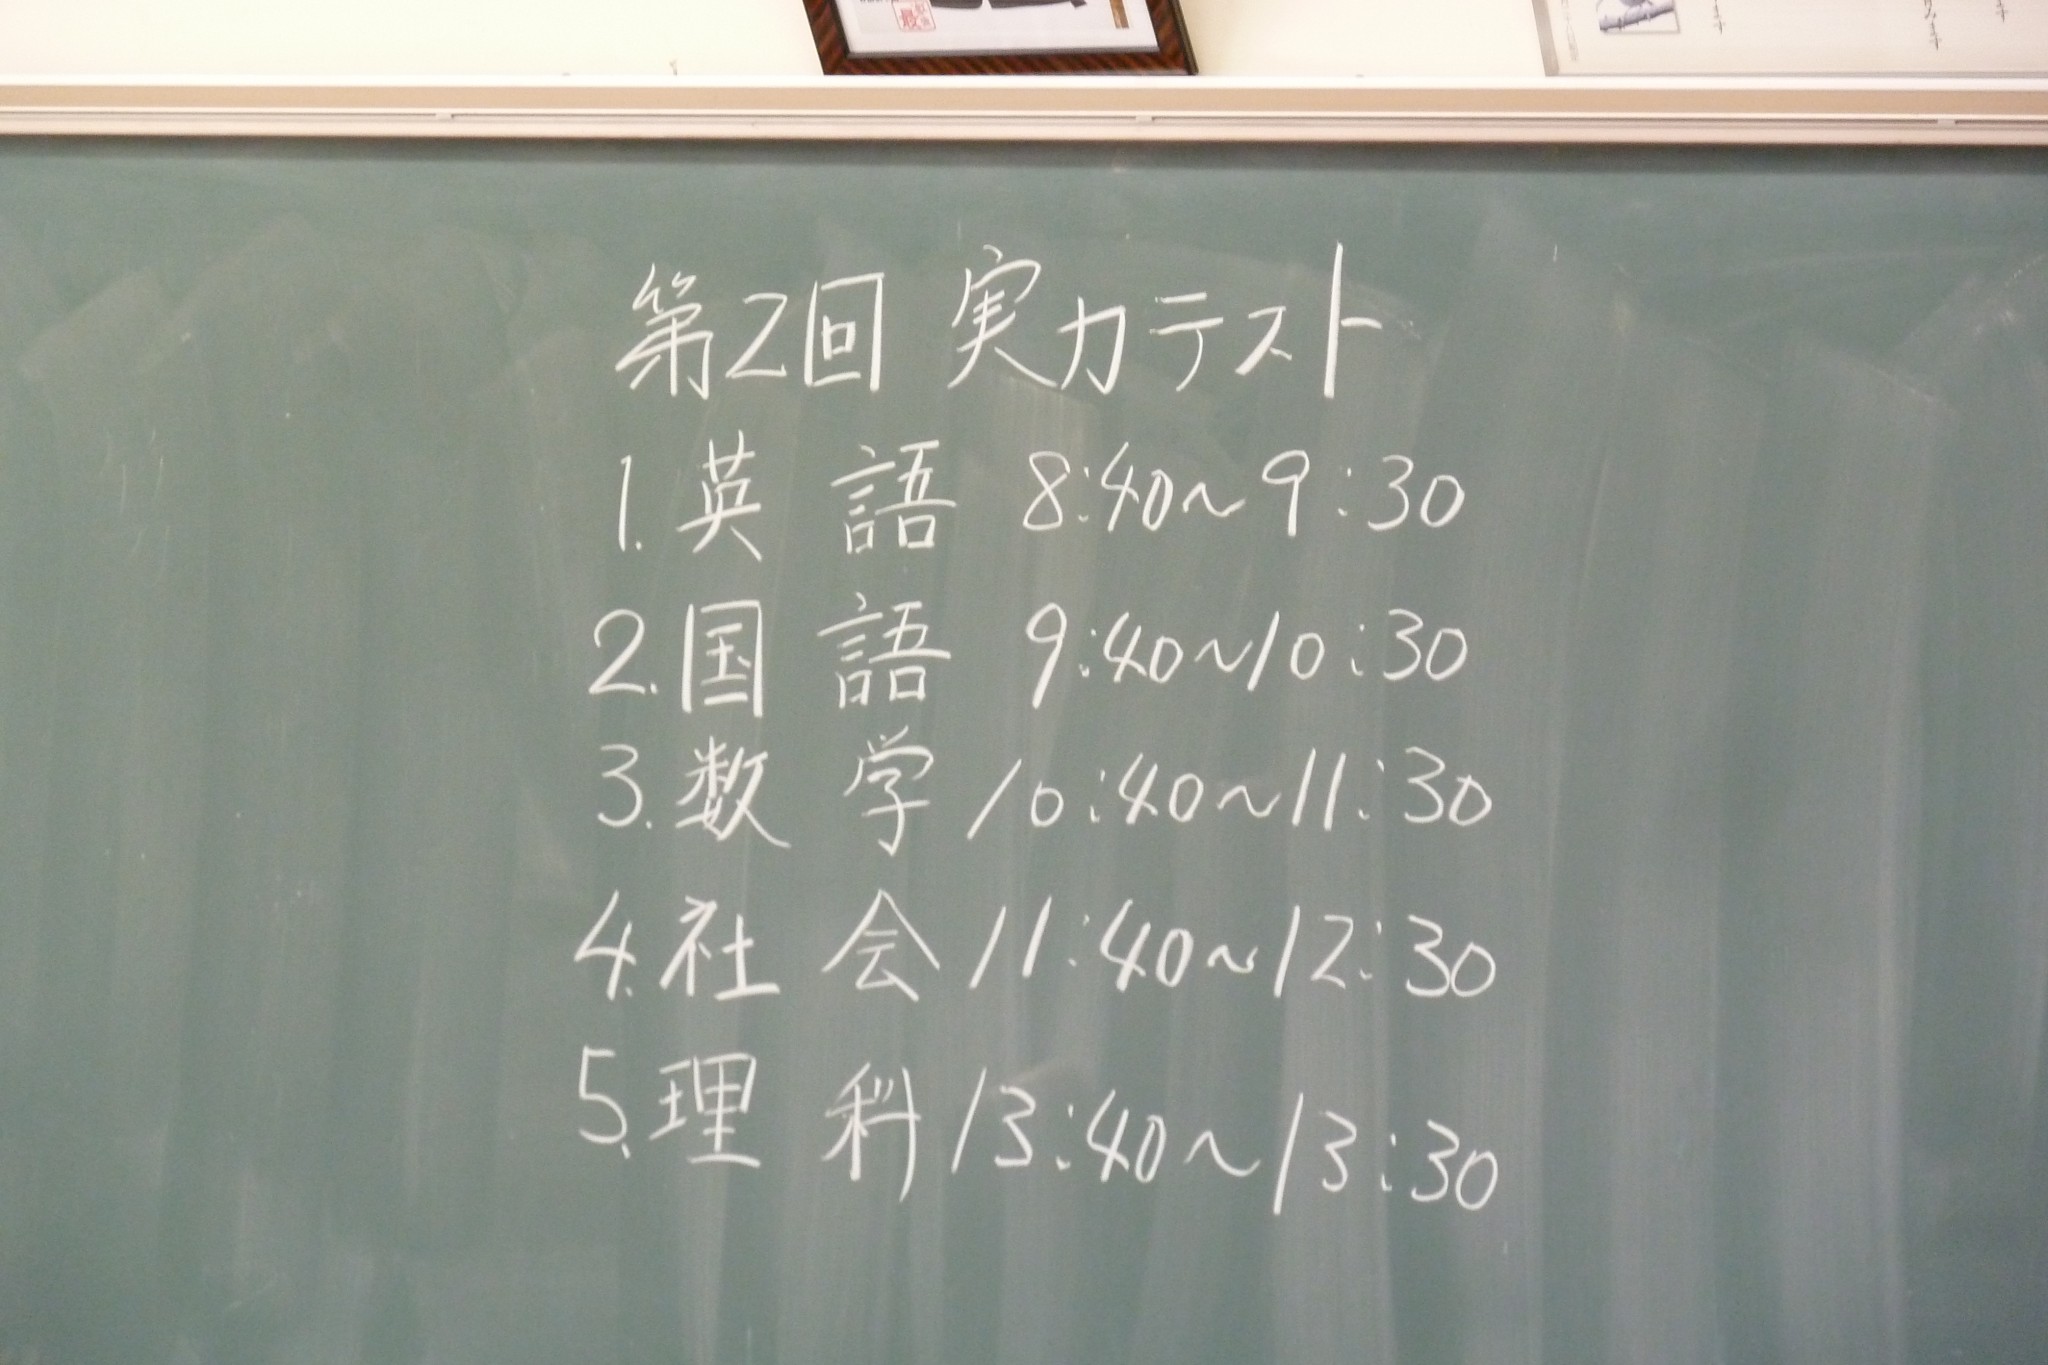 第2回 実力テスト
1. 英 語 8:40～9:30
2. 国 語 9:40～10:30
3. 数 学 10:40～11:30
4. 社 会 11:40～12:30
5. 理 科 13:40～13:30